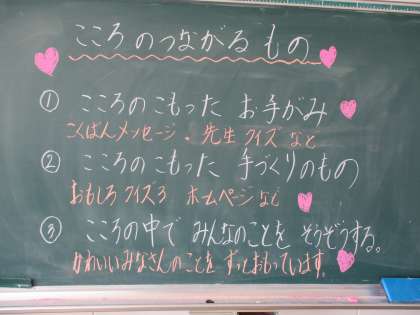 こころのつながるもの
① こころのこもった お手がみ
こくばんメッセージ、先生クイズなど
② こころのこもった 手づくりのもの
おもしろクイズ3 ホームページなど
③ こころの中で みんなのことを そうぞうする。
かわいいみなさんのことを ずっとおもっています。